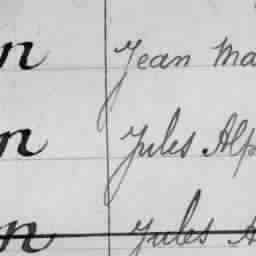 n Jean Ma
n Jules Alp
n Jules A